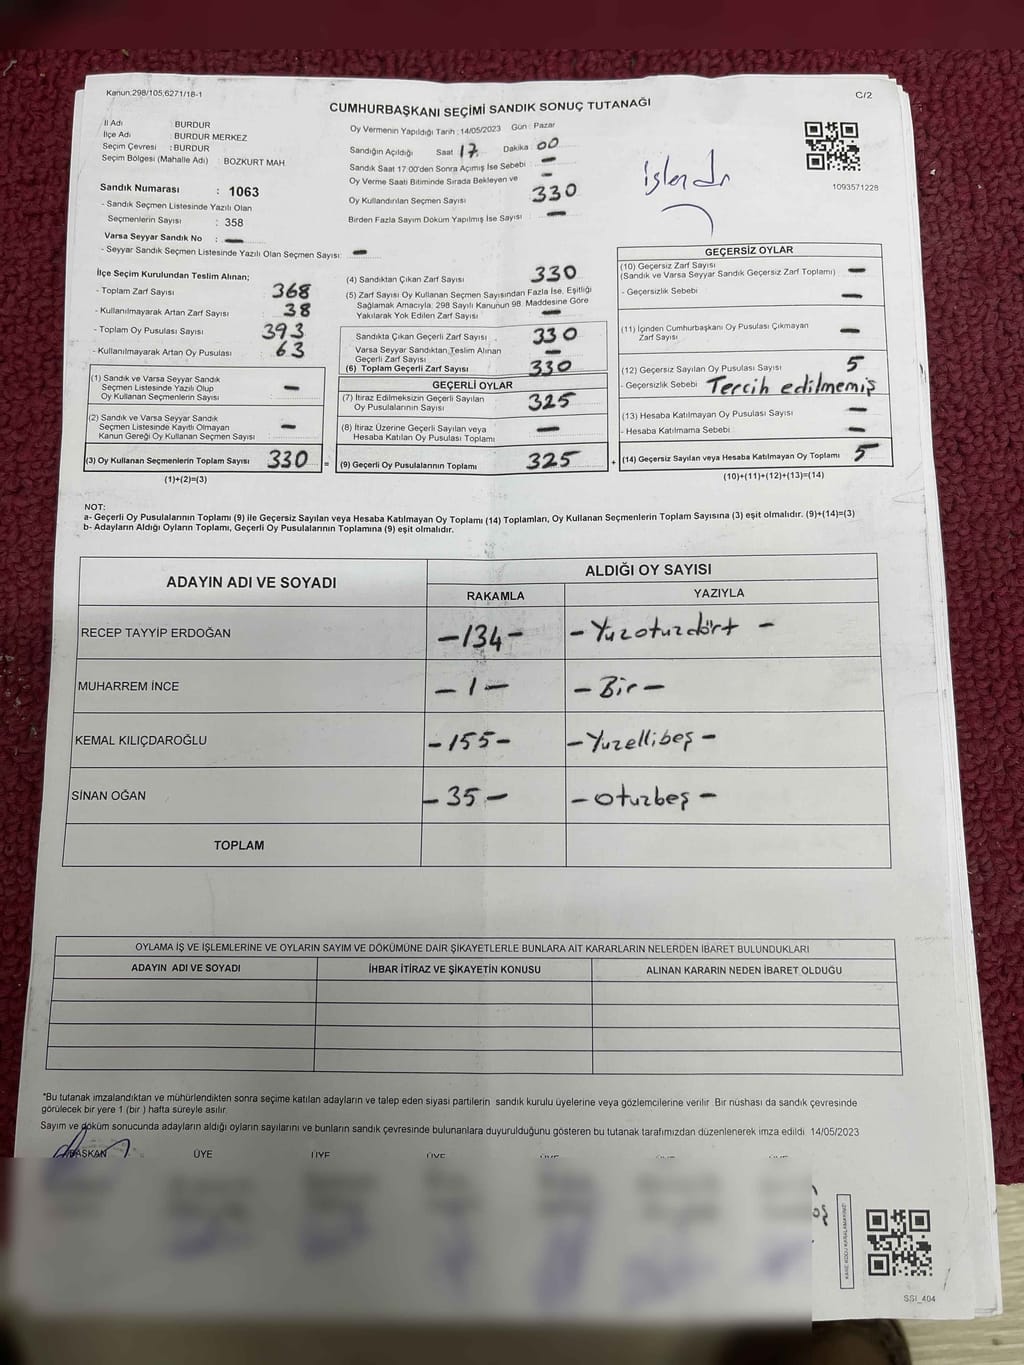 Kanun:298/105,6271/18-1
C/2
CUMHURBAŞKANI SEÇİMİ SANDIK SONUÇ TUTANAĞI
İl Adı : BURDUR
İlçe Adı : BURDUR MERKEZ
Seçim Çevresi : BURDUR
Seçim Bölgesi (Mahalle Adı) : BOZKURT MAH
Sandık Numarası : 1063
- Sandık Seçmen Listesinde Yazılı Olan
Seçmenlerin Sayısı : 358
Varsa Seyyar Sandık No : —
- Seyyar Sandık Seçmen Listesinde Yazılı Olan Seçmen Sayısı: —
Oy Vermenin Yapıldığı Tarih : 14/05/2023 Gün : Pazar
Sandığın Açıldığı Saat 17 Dakika 00
Sandık Saat 17:00'den Sonra Açımış İse Sebebi : —
Oy Verme Saati Bitiminde Sırada Bekleyen ve —
Oy Kullandırılan Seçmen Sayısı 330
Birden Fazla Sayım Döküm Yapılmış İse Sayısı —
işlendi
1093571228
İlçe Seçim Kurulundan Teslim Alınan;
- Toplam Zarf Sayısı 368
- Kullanılmayarak Artan Zarf Sayısı 38
- Toplam Oy Pusulası Sayısı 393
- Kullanılmayarak Artan Oy Pusulası 63
(1) Sandık ve Varsa Seyyar Sandık
Seçmen Listesinde Yazılı Olup
Oy Kullanan Seçmenlerin Sayısı —
(2) Sandık ve Varsa Seyyar Sandık
Seçmen Listesinde Kayıtlı Olmayan
Kanun Gereği Oy Kullanan Seçmen Sayısı —
(3) Oy Kullanan Seçmenlerin Toplam Sayısı 330 =
(1)+(2)=(3)
(4) Sandıktan Çıkan Zarf Sayısı 330
(5) Zarf Sayısı Oy Kullanan Seçmen Sayısından Fazla İse, Eşitliği
Sağlamak Amacıyla; 298 Sayılı Kanunun 98. Maddesine Göre
Yakılarak Yok Edilen Zarf Sayısı —
Sandıkta Çıkan Geçerli Zarf Sayısı 330
Varsa Seyyar Sandıktan Teslim Alınan
Geçerli Zarf Sayısı —
(6) Toplam Geçerli Zarf Sayısı 330
GEÇERLİ OYLAR
(7) İtiraz Edilmeksizin Geçerli Sayılan
Oy Pusulalarının Sayısı 325
(8) İtiraz Üzerine Geçerli Sayılan veya
Hesaba Katılan Oy Pusulası Toplamı —
(9) Geçerli Oy Pusulalarının Toplamı 325 +
GEÇERSİZ OYLAR
(10) Geçersiz Zarf Sayısı
(Sandık ve Varsa Seyyar Sandık Geçersiz Zarf Toplamı) —
- Geçersizlik Sebebi —
(11) İçinden Cumhurbaşkanı Oy Pusulası Çıkmayan
Zarf Sayısı —
(12) Geçersiz Sayılan Oy Pusulası Sayısı 5
- Geçersizlik Sebebi Tercih edilmemiş
(13) Hesaba Katılmayan Oy Pusulası Sayısı —
- Hesaba Katılmama Sebebi —
(14) Geçersiz Sayılan veya Hesaba Katılmayan Oy Toplamı 5
(10)+(11)+(12)+(13)=(14)
NOT:
a- Geçerli Oy Pusulalarının Toplamı (9) ile Geçersiz Sayılan veya Hesaba Katılmayan Oy Toplamı (14) Toplamları, Oy Kullanan Seçmenlerin Toplam Sayısına (3) eşit olmalıdır. (9)+(14)=(3)
b- Adayların Aldığı Oyların Toplamı, Geçerli Oy Pusulalarının Toplamına (9) eşit olmalıdır.
ADAYIN ADI VE SOYADI
ALDIĞI OY SAYISI
RAKAMLA YAZIYLA
RECEP TAYYİP ERDOĞAN -134- - Yuzotuzdört -
MUHARREM İNCE -1- - Bir -
KEMAL KILIÇDAROĞLU -155- - Yuzellibeş -
SİNAN OĞAN -35- - otuzbeş -
TOPLAM
OYLAMA İŞ VE İŞLEMLERİNE VE OYLARIN SAYIM VE DÖKÜMÜNE DAİR ŞİKAYETLERLE BUNLARA AİT KARARLARIN NELERDEN İBARET BULUNDUKLARI
ADAYIN ADI VE SOYADI İHBAR İTİRAZ VE ŞİKAYETİN KONUSU ALINAN KARARIN NEDEN İBARET OLDUĞU
*Bu tutanak imzalandıktan ve mühürlendikten sonra seçime katılan adayların ve talep eden siyasi partilerin sandık kurulu üyelerine veya gözlemcilerine verilir. Bir nüshası da sandık çevresinde
görülecek bir yere 1 (bir ) hafta süreyle asılır.
Sayım ve döküm sonucunda adayların aldığı oyların sayılarını ve bunların sandık çevresinde bulunanlara duyurulduğunu gösteren bu tutanak tarafımızdan düzenlenerek imza edildi. 14/05/2023
BAŞKAN ÜYE ÜYE ÜYE
KARE KODU KARALAMAYINIZ!
SSI_404